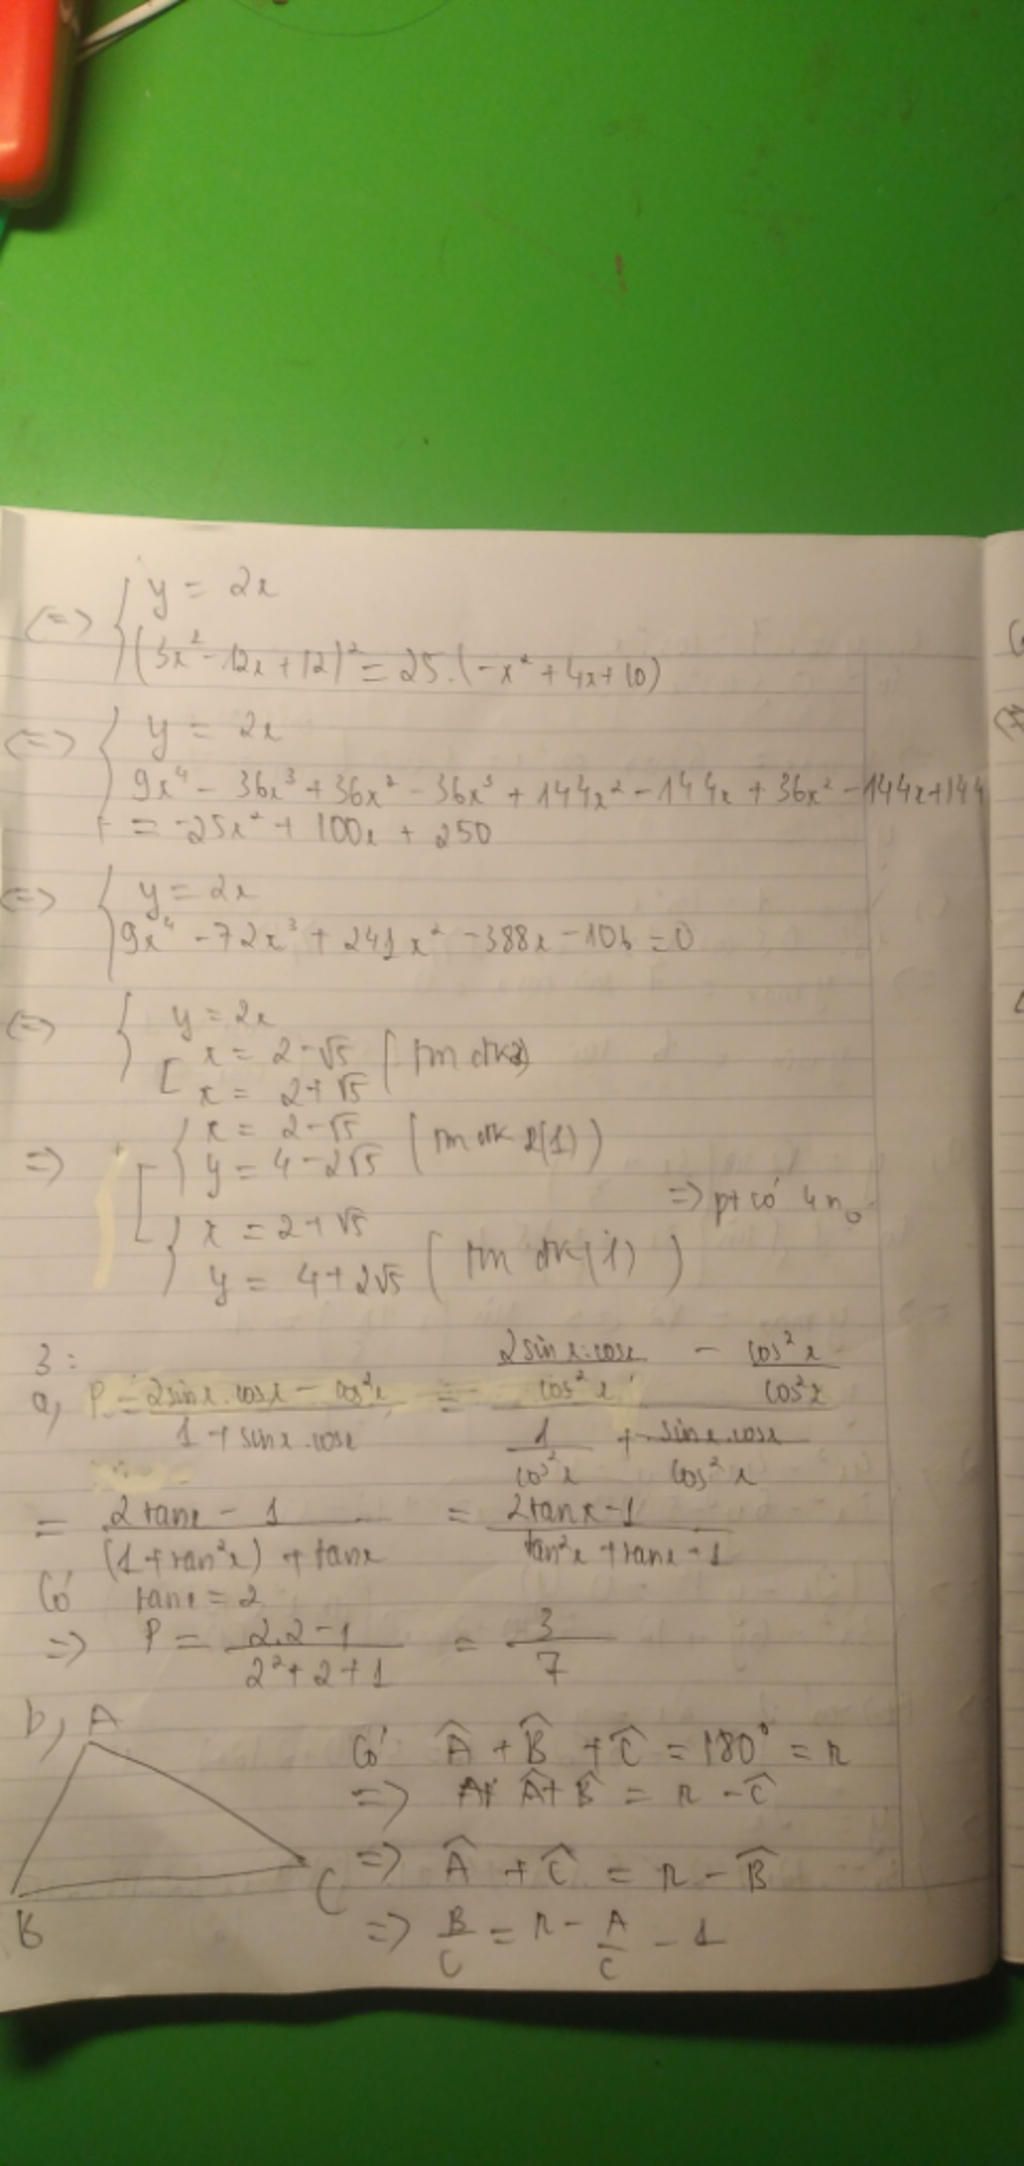 <=> { y = 2x
(3x² - 12x + 12)² = 25.(-x² + 4x + 10)
<=> { y = 2x
9x⁴ - 36x³ + 36x² - 36x³ + 144x² - 144x + 36x² - 144x + 144
= -25x² + 100x + 250
<=> { y = 2x
9x⁴ - 72x³ + 241x² - 388x - 106 = 0
<=> { y = 2x
[ x = 2 - √5 (tm đk)
x = 2 + √5
=> [ { x = 2 - √5 (tm đk 2(1))
y = 4 - 2√5
=> pt có 4 n₀
{ x = 2 + √5
y = 4 + 2√5 (tm đk(1))
3:
a, P = (2sinx.cosx - cos²x)/(1 + sinx.cosx) = (2sinx.cosx/cos²x - cos²x/cos²x)/(1/cos²x + sinx.cosx/cos²x)
= (2tanx - 1)/((1 + tan²x) + tanx) = (2tanx - 1)/(tan²x + tanx + 1)
Có tanx = 2
=> P = (2.2 - 1)/(2² + 2 + 1) = 3/7
b, A
B
C
Có Â + B̂ + Ĉ = 180° = π
=> Â + B̂ = π - Ĉ
=> Â + Ĉ = π - B̂
=> B/C = π - A/C - 1